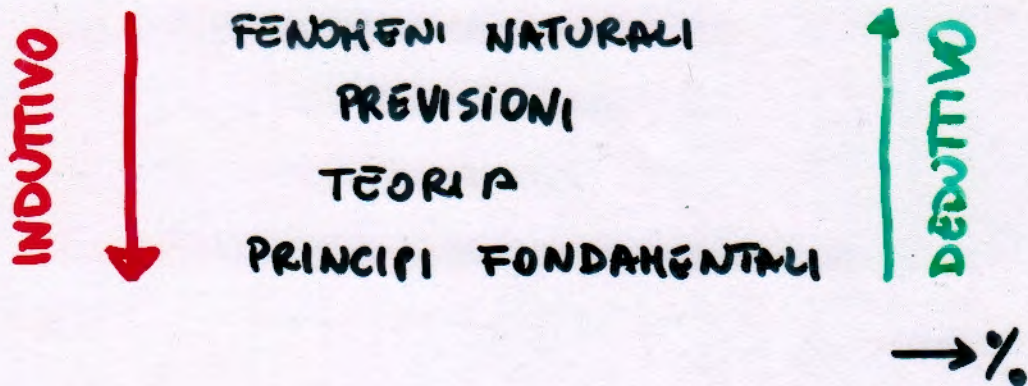 INDUTTIVO
FENOMENI NATURALI
PREVISIONI
TEORIA
PRINCIPI FONDAMENTALI
DEDUTTIVO
→%